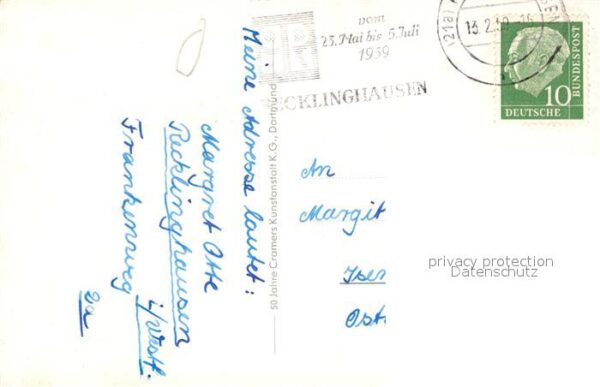 vom
23. Mai bis 5. Juli
1959
RECKLINGHAUSEN
(21a)
13.2.59
10
DEUTSCHE
BUNDESPOST
Meine Adresse lautet:
Margret Otte
Recklinghausen
i/Westf.
Frankenweg
2a
50 Jahre Cramers Kunstanstalt K.G., Dortmund
An
Margit
Iser
Ost.
privacy protection
Datenschutz